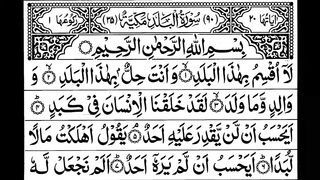 اٰيَاتُهَا ٢٠ (٩٠) سُوْرَةُ الْبَلَدِ مَكِّيَّةٌ (٣٥) رُكُوْعُهَا ١
بِسْمِ اللّٰهِ الرَّحْمٰنِ الرَّحِيْمِ
لَاۤ اُقْسِمُ بِهٰذَا الْبَلَدِ ۙ﴿۱﴾ وَاَنْتَ حِلٌّۢ بِهٰذَا الْبَلَدِ ۙ﴿۲﴾ وَ
وَالِدٍ وَّمَا وَلَدَ ۙ﴿۳﴾ لَقَدْ خَلَقْنَا الْاِنْسَانَ فِيْ كَبَدٍ ؕ﴿۴﴾
اَيَحْسَبُ اَنْ لَّنْ يَّقْدِرَ عَلَيْهِ اَحَدٌ ۘ﴿۵﴾ يَقُوْلُ اَهْلَكْتُ مَالًا
لُّبَدًا ؕ﴿۶﴾ اَيَحْسَبُ اَنْ لَّمْ يَرَهٗۤ اَحَدٌ ؕ﴿۷﴾ اَلَمْ نَجْعَلْ لَّهٗ